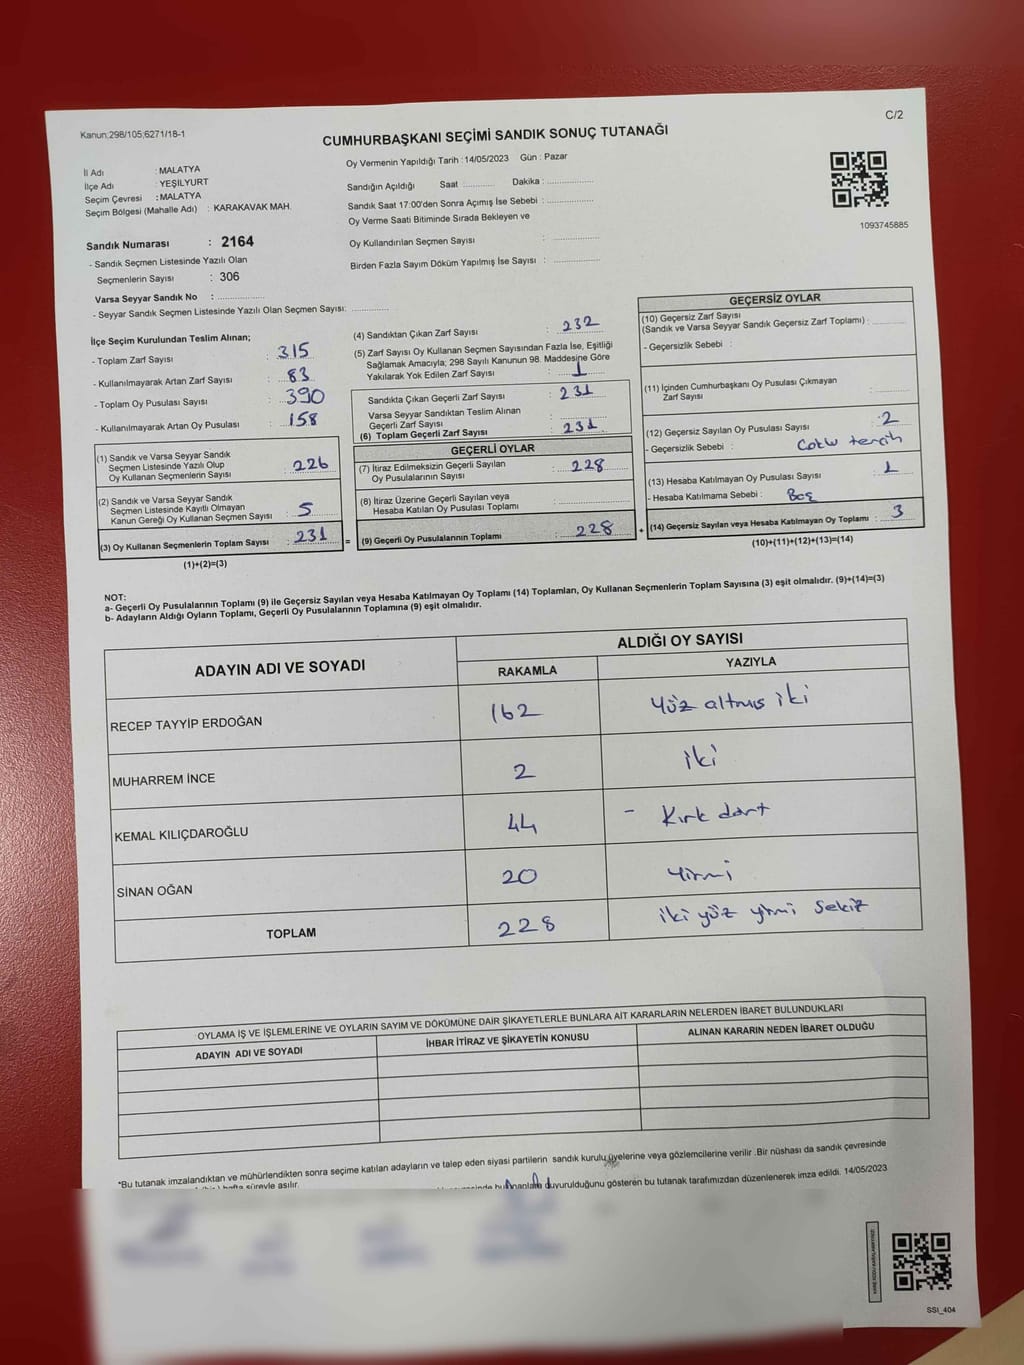 Kanun:298/105;6271/18-1
C/2
CUMHURBAŞKANI SEÇİMİ SANDIK SONUÇ TUTANAĞI
İl Adı : MALATYA
İlçe Adı : YEŞİLYURT
Seçim Çevresi : MALATYA
Seçim Bölgesi (Mahalle Adı) : KARAKAVAK MAH.
Oy Vermenin Yapıldığı Tarih : 14/05/2023 Gün : Pazar
Sandığın Açıldığı Saat :............ Dakika :................
Sandık Saat 17:00'den Sonra Açımış İse Sebebi :................
Oy Verme Saati Bitiminde Sırada Bekleyen ve
Oy Kullandırılan Seçmen Sayısı :................
Birden Fazla Sayım Döküm Yapılmış İse Sayısı :................
1093745885
Sandık Numarası : 2164
- Sandık Seçmen Listesinde Yazılı Olan
Seçmenlerin Sayısı : 306
Varsa Seyyar Sandık No :................
- Seyyar Sandık Seçmen Listesinde Yazılı Olan Seçmen Sayısı: ............
İlçe Seçim Kurulundan Teslim Alınan;
- Toplam Zarf Sayısı : 315
- Kullanılmayarak Artan Zarf Sayısı : 83
- Toplam Oy Pusulası Sayısı : 390
- Kullanılmayarak Artan Oy Pusulası : 158
(1) Sandık ve Varsa Seyyar Sandık
Seçmen Listesinde Yazılı Olup
Oy Kullanan Seçmenlerin Sayısı : 226
(2) Sandık ve Varsa Seyyar Sandık
Seçmen Listesinde Kayıtlı Olmayan
Kanun Gereği Oy Kullanan Seçmen Sayısı : 5
(3) Oy Kullanan Seçmenlerin Toplam Sayısı : 231 =
(1)+(2)=(3)
(4) Sandıktan Çıkan Zarf Sayısı : 232
(5) Zarf Sayısı Oy Kullanan Seçmen Sayısından Fazla İse, Eşitliği
Sağlamak Amacıyla; 298 Sayılı Kanunun 98. Maddesine Göre
Yakılarak Yok Edilen Zarf Sayısı : 1
Sandıkta Çıkan Geçerli Zarf Sayısı : 231
Varsa Seyyar Sandıktan Teslim Alınan
Geçerli Zarf Sayısı :
(6) Toplam Geçerli Zarf Sayısı : 231
GEÇERLİ OYLAR
(7) İtiraz Edilmeksizin Geçerli Sayılan
Oy Pusulasının Sayısı : 228
(8) İtiraz Üzerine Geçerli Sayılan veya
Hesaba Katılan Oy Pusulası Toplamı :
(9) Geçerli Oy Pusulalarının Toplamı : 228 +
GEÇERSİZ OYLAR
(10) Geçersiz Zarf Sayısı
(Sandık ve Varsa Seyyar Sandık Geçersiz Zarf Toplamı) :
- Geçersizlik Sebebi :
(11) İçinden Cumhurbaşkanı Oy Pusulası Çıkmayan
Zarf Sayısı :
(12) Geçersiz Sayılan Oy Pusulası Sayısı : 2
- Geçersizlik Sebebi : Coklu tercih
(13) Hesaba Katılmayan Oy Pusulası Sayısı : 1
- Hesaba Katılmama Sebebi : Boş
(14) Geçersiz Sayılan veya Hesaba Katılmayan Oy Toplamı : 3
(10)+(11)+(12)+(13)=(14)
NOT:
a- Geçerli Oy Pusulalarının Toplamı (9) ile Geçersiz Sayılan veya Hesaba Katılmayan Oy Toplamı (14) Toplamları, Oy Kullanan Seçmenlerin Toplam Sayısına (3) eşit olmalıdır. (9)+(14)=(3)
b- Adayların Aldığı Oyların Toplamı, Geçerli Oy Pusulalarının Toplamına (9) eşit olmalıdır.
ADAYIN ADI VE SOYADI ALDIĞI OY SAYISI
RAKAMLA YAZIYLA
RECEP TAYYİP ERDOĞAN 162 Yüz altmıs iki
MUHARREM İNCE 2 iki
KEMAL KILIÇDAROĞLU 44 - Kırk dört
SİNAN OĞAN 20 Yirmi
TOPLAM 228 iki yüz yirmi sekiz
OYLAMA İŞ VE İŞLEMLERİNE VE OYLARIN SAYIM VE DÖKÜMÜNE DAİR ŞİKAYETLERLE BUNLARA AİT KARARLARIN NELERDEN İBARET BULUNDUKLARI
ADAYIN ADI VE SOYADI İHBAR İTİRAZ VE ŞİKAYETİN KONUSU ALINAN KARARIN NEDEN İBARET OLDUĞU
*Bu tutanak imzalandıktan ve mühürlendikten sonra seçime katılan adayların ve talep eden siyasi partilerin sandık kurulu üyelerine veya gözlemcilerine verilir .Bir nüshası da sandık çevresinde
hafta süreyle asılır.
duyurulduğunu gösteren bu tutanak tarafımızdan düzenlenerek imza edildi. 14/05/2023
SSI_404